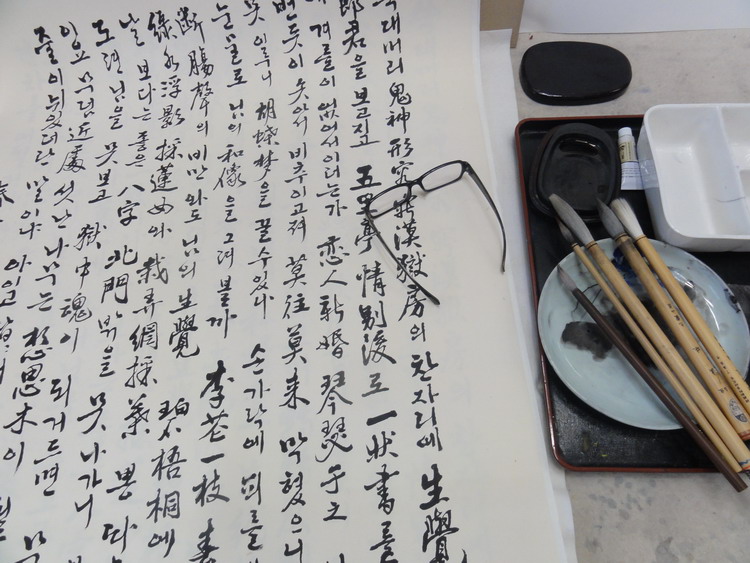 대머리 鬼神形容 寂漠獄房의 찬자리에 生覺
郎君을 보고짚고 五里亭 情別後로 一狀書를
겨를이 없어서이더는가 恋人新婚 琴瑟于之
번듯이 솟아서 비추이고져 莫往莫来 막혔으니
못 이루니 胡蝶梦을 꿀수있나 손가락에 피를
눈물로 님의 和像을 그려볼까 李花一枝 春
断腸聲의 비만 와도 님의 生覺 碧梧桐에
綠水浮影 採蓮女와 栽弄網採葉 뽕따
날 보다는 좋은 八字 北門 밖을 못나가니
도련님을 못보고 獄中魂이 되거드면
이요 무덤近處 섯난나무는 想思木이
줄이 뉘있더란 말이냐 아이고